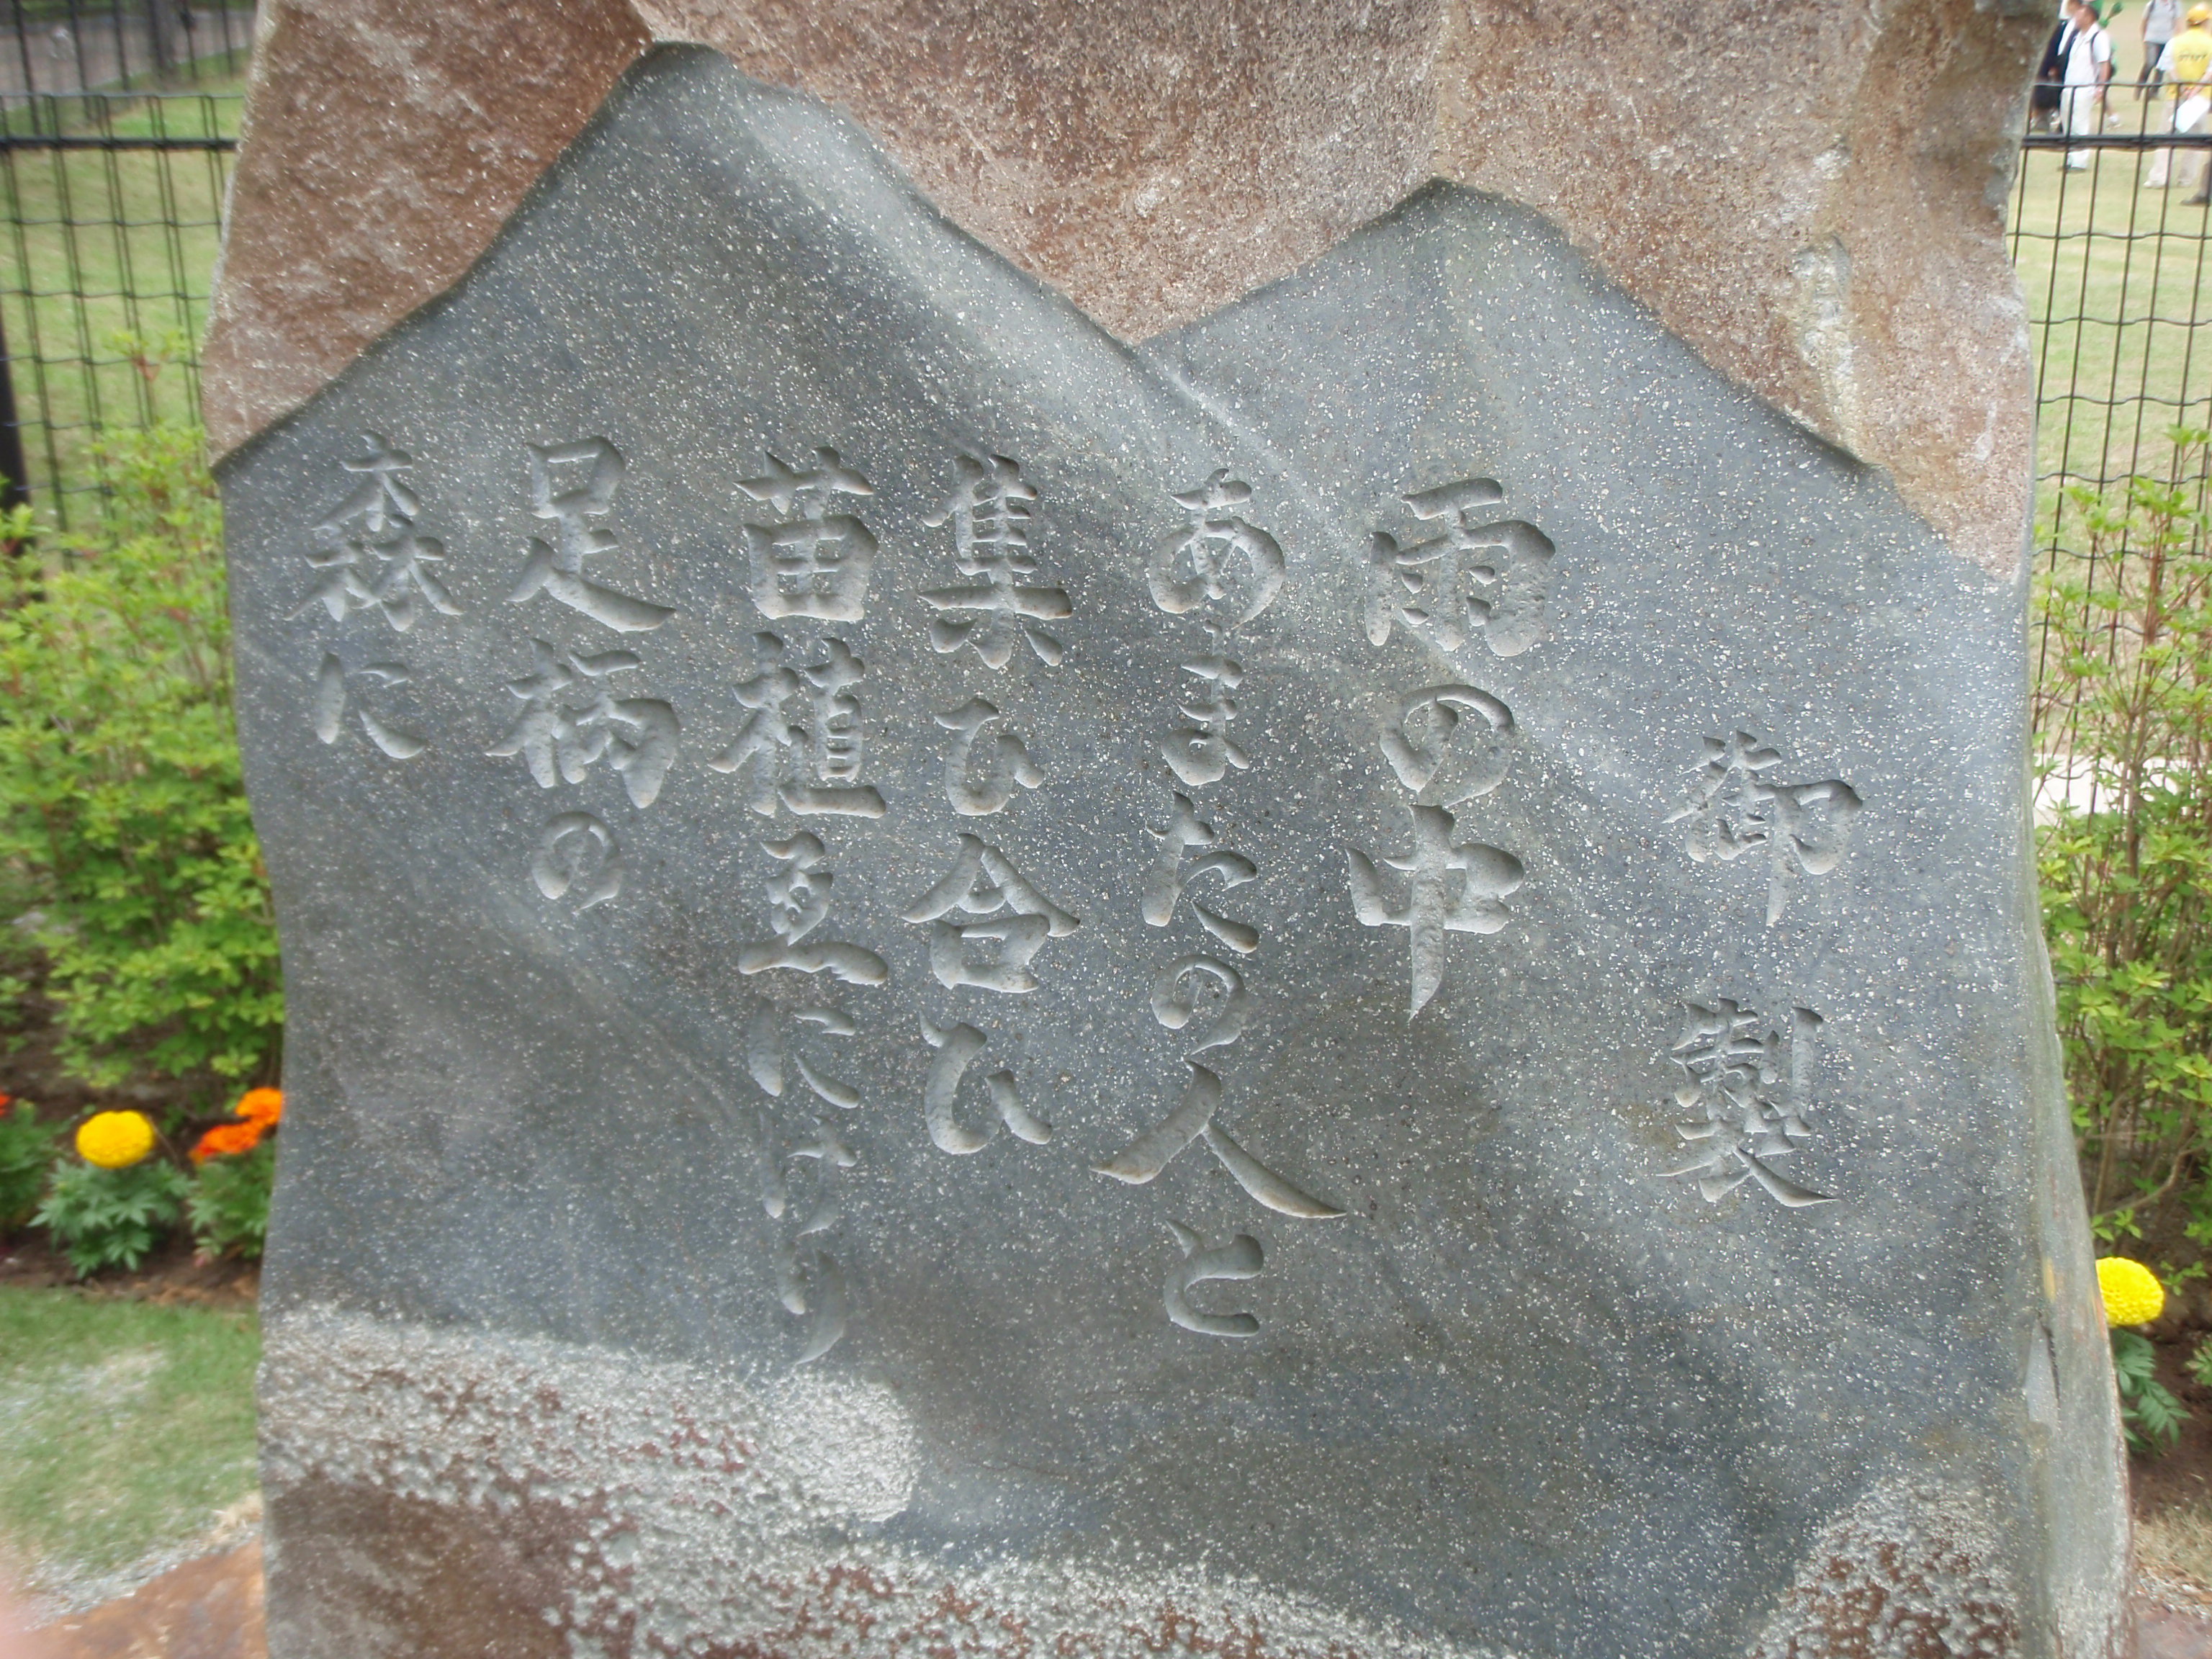 御製
雨の中
あまたの人と
集ひ合ひ
苗植ゑにけり
足柄の
森に